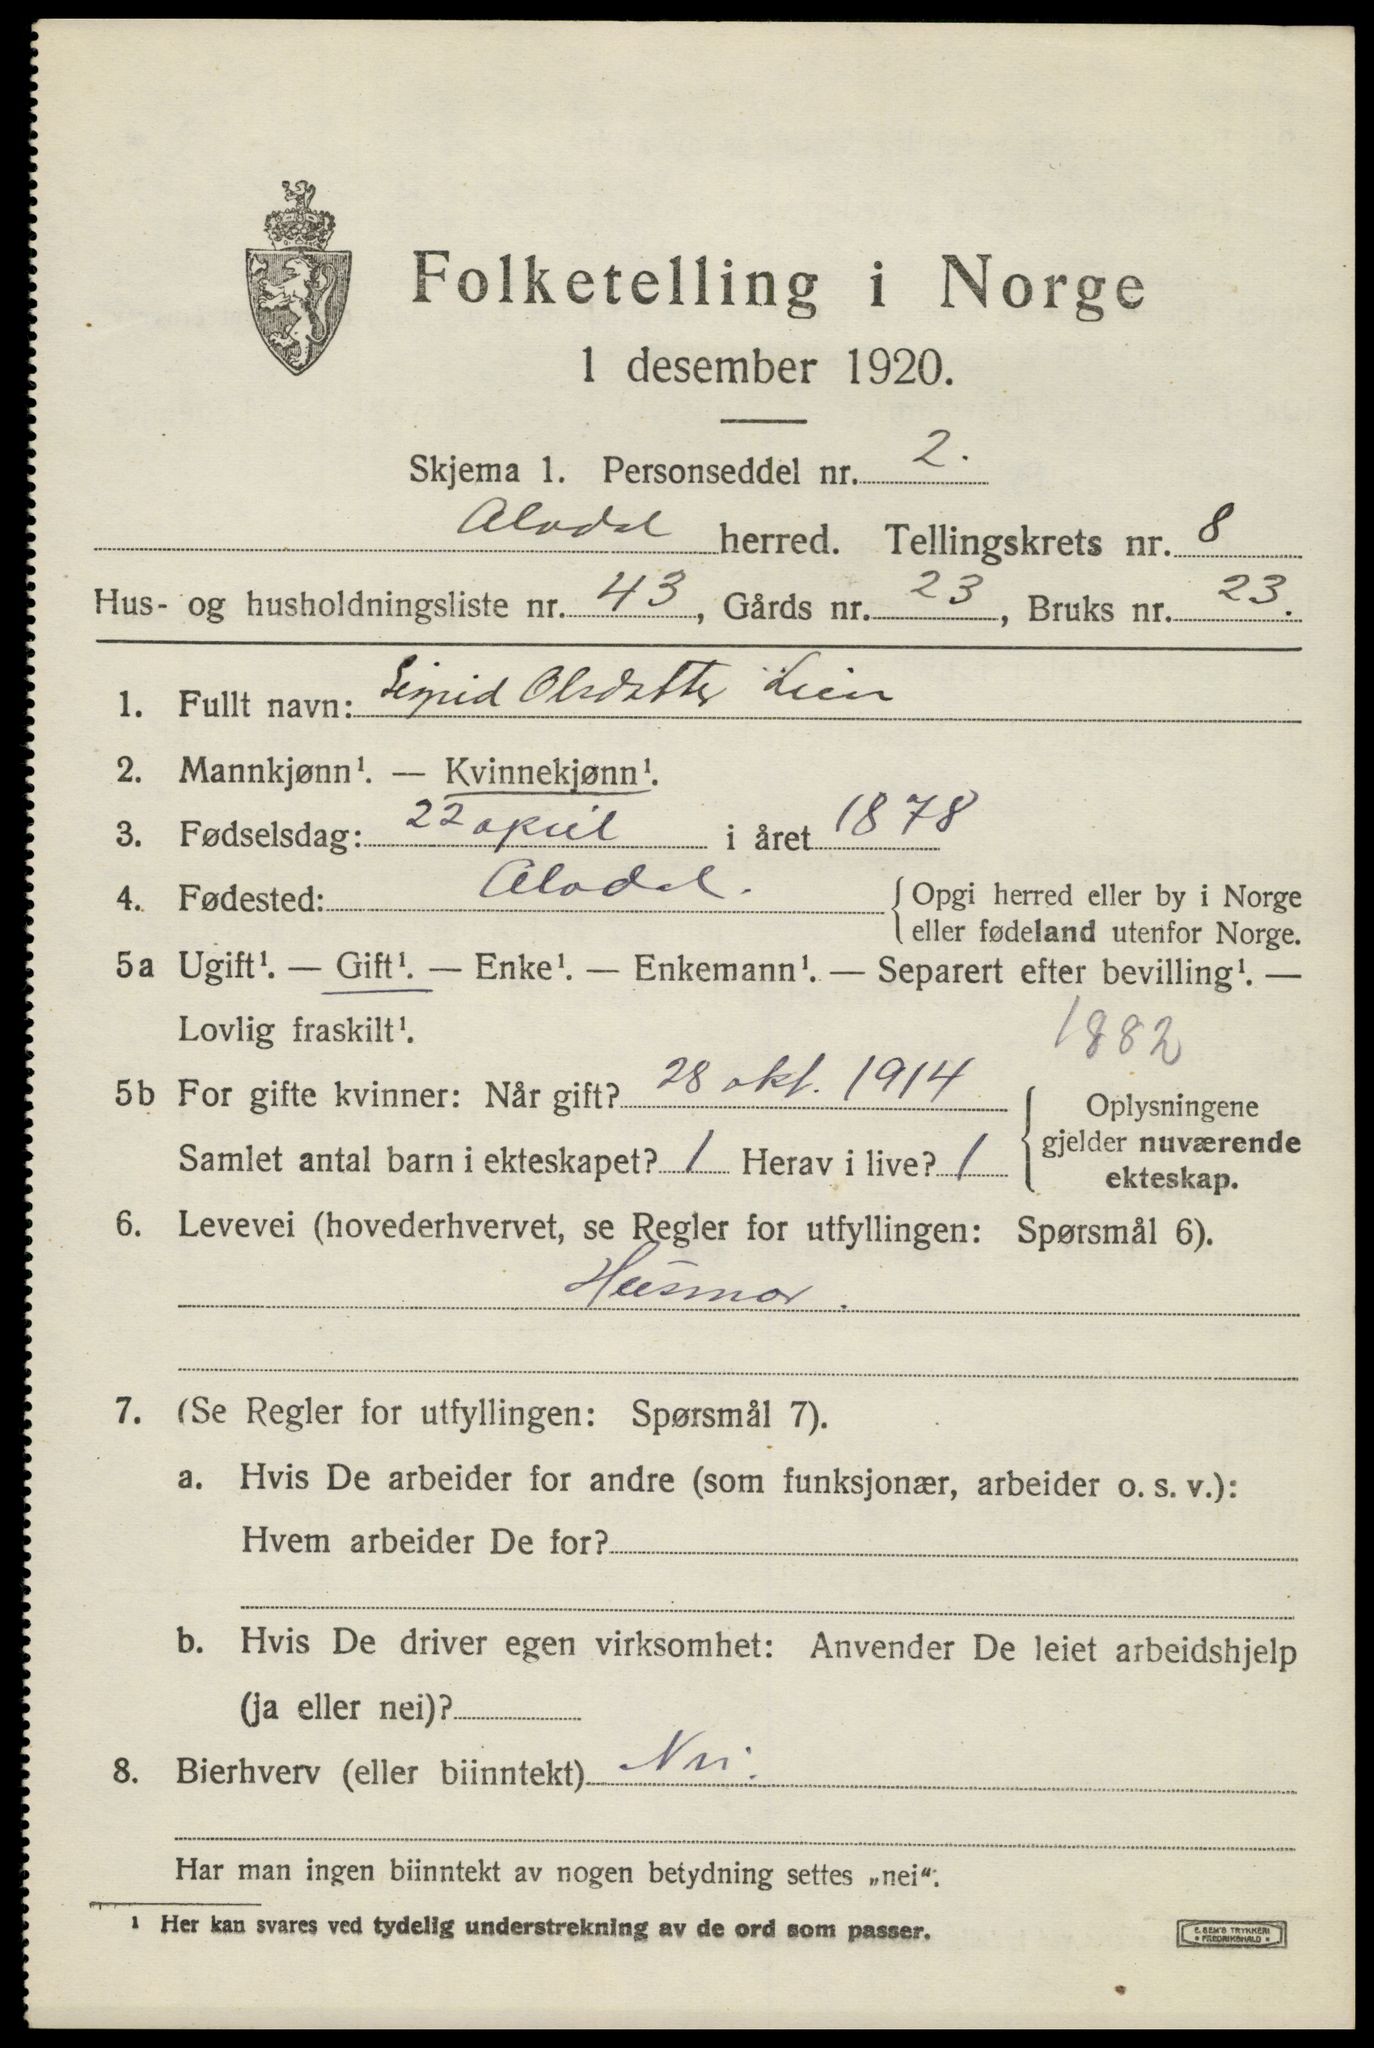 Folketelling i Norge
1 desember 1920.
Skjema 1. Personseddel nr. 2.
Alvdal herred. Tellingskrets nr. 8
Hus- og husholdningsliste nr. 43, Gårds nr. 23, Bruks nr. 23.
1. Fullt navn: Sigrid Olsdatter Lien
2. Mannkjønn¹. — Kvinnekjønn¹.
3. Fødselsdag: 22 april i året 1878
4. Fødested: Alvdal. { Opgi herred eller by i Norge
eller fødeland utenfor Norge.
5a Ugift¹. — Gift¹. — Enke¹. — Enkemann¹. — Separert efter bevilling¹. —
Lovlig fraskilt¹.
1882
5b For gifte kvinner: Når gift? 28 okt. 1914
Samlet antal barn i ekteskapet? 1 Herav i live? 1
{ Oplysningene
gjelder nuværende
ekteskap.
6. Levevei (hovederhvervet, se Regler for utfyllingen: Spørsmål 6).
Husmor.
7. (Se Regler for utfyllingen: Spørsmål 7).
a. Hvis De arbeider for andre (som funksjonær, arbeider o. s. v.):
Hvem arbeider De for?
b. Hvis De driver egen virksomhet: Anvender De leiet arbeidshjelp
(ja eller nei)?
8. Bierhverv (eller biinntekt) Nei.
Har man ingen biinntekt av nogen betydning settes „nei“.
¹ Her kan svares ved tydelig understrekning av de ord som passer.
E. SEM'S TRYKKERI
• FREDRIKSHALD •